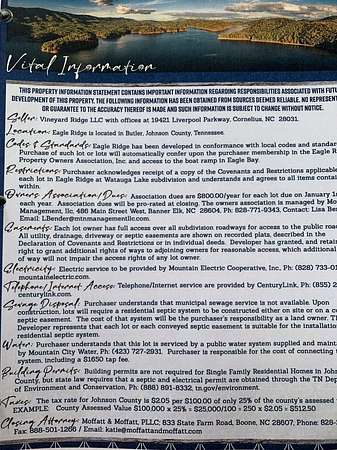 Vital Information
THIS PROPERTY INFORMATION STATEMENT CONTAINS IMPORTANT INFORMATION REGARDING RESPONSIBILITIES ASSOCIATED WITH FUTU
DEVELOPMENT OF THIS PROPERTY. THE FOLLOWING INFORMATION HAS BEEN OBTAINED FROM SOURCES DEEMED RELIABLE. NO REPRESENT
OR GUARANTEE TO THE ACCURACY THEREOF IS MADE AND SUCH INFORMATION IS SUBJECT TO CHANGE WITHOUT NOTICE.
Seller: Vineyard Ridge LLC with offices at 19421 Liverpool Parkway, Cornelius, NC 28031.
Location: Eagle Ridge is located in Butler, Johnson County, Tennessee.
Codes & Standards: Eagle Ridge has been developed in conformance with local codes and standar
Purchase of such lot or lots will automatically confer upon the purchaser membership in the Eagle R
Property Owners Association, Inc. and access to the boat ramp in Eagle Bay.
Restrictions: Purchaser acknowledges receipt of a copy of the Covenants and Restrictions applicable
each lot in Eagle Ridge at Watauga Lake subdivision and understands and agrees to all items contai
within.
Owners Association/Dues: Association dues are $800.00/year for each lot due on January 1s
each year. Association dues will be pro-rated at closing. The owners association is managed by Mo
Management, llc, 486 Main Street West, Banner Elk, NC 28604, Ph: 828-771-9343, Contact: Lisa Ber
Email: LBender@mtnmanagementllc.com.
Easements: Each lot owner has full access over all subdivision roadways for access to the public roa
All utility, drainage, driveway or septic easements are shown on recorded plats, described in the
Declaration of Covenants and Restrictions or in individual deeds. Developer has granted, and retain
right to grant additional rights of ways to adjoining owners for reasonable access, which additional
of way will not impair the access rights of any lot owner.
Electricity: Electric service to be provided by Mountain Electric Cooperative, Inc, Ph: (828) 733-01
mountainelectric.com.
Telephone/Internet Access: Telephone/Internet services are provided by CenturyLink, Ph: (855) 2
centurylink.com.
Sewage Disposal: Purchaser understands that municipal sewage service is not available. Upon
construction, lots will require a residential septic system to be constructed either on site or on a co
septic easement. The cost of that system will be the purchaser's responsibility as a land owner. T
Developer represents that each lot or each conveyed septic easement is suitable for the installatio
residential septic system.
Water: Purchaser understands that this lot is serviced by a public water system supplied and maint
by Mountain City Water, Ph: (423) 727-2931. Purchaser is responsible for the cost of connecting
system, including a $1650 tap fee.
Building Permits: Building permits are not required for Single Family Residential Homes in John
County, but state law requires that a septic and electrical permit are obtained through the TN Dep
of Environment and Conservation, Ph: (888) 891-8332, tn.gov/environment.
Taxes: The tax rate for Johnson County is $2.05 per $100.00 of only 25% of the county's assessed
EXAMPLE: County Assessed Value $100,000 x 25% = $25,000/100 = 250 x $2.05 = $512.50
Closing Attorney: Moffatt & Moffatt, PLLC; 833 State Farm Road, Boone, NC 28607, Phone: 828-
Fax: 888-501-1266 / Email: katie@moffattandmoffatt.com